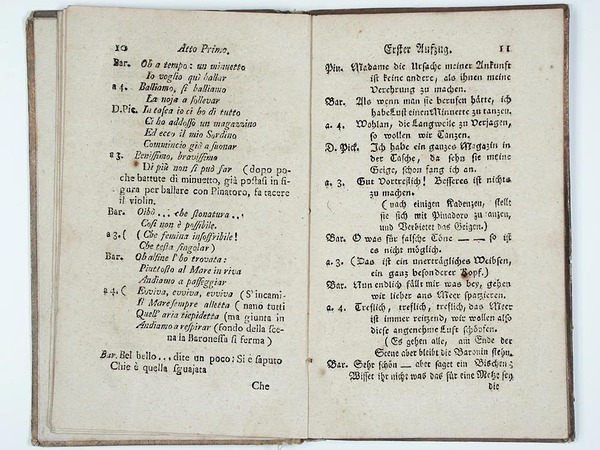 10 Atto Primo.
Bar. Ob a tempo: un minuetto
Io voglio quì ballar
a 4. Balliamo, sì balliamo
La noja a sollevar
D.Pic. In tasca io ci ho di tutto
Ci ho addosso un magazzino
Ed ecco il mio Sordino
Commincio già a suonar
a 3. Benissimo, bravissimo
Di più non si può far (dopo po-
che battute di minuetto, già postasi in fi-
gura per ballare con Pinatoro, fa tacere
il violin.
Bar. Oibò... che stonatura..,
Così non è possibile.
a 3. ( (Che femina insoffribile!
Che testa singolar)
Bar. Ob alfine l'ho trovata:
Piuttosto al Mare in riva
Andiamo a passeggiar
a 4. ( Evviva, evviva, evviva (S'incami-
Il Mare sempre alletta ( nano tutti
Quell' aria tiepidetta (ma giunta in
Andiamo a respirar (fondo della sce-
na la Baronessa si ferma)
Bar. Bel bello... dite un poco: Si è saputo
Chie è quella sguajata
Che
Erster Aufzug. 11
Pin. Madame die Ursache meiner Ankunft
ist keine andere, als ihnen meine
Verehrung zu machen.
Bar. Als wenn man sie berufen hätte, ich
habe Lust einen Minuette zu tanzen.
a. 4. Wohlan, die Langweile zu Verjagen,
so wollen wir Tanzen.
D. Pick. Ich habe ein ganzes Magazin in
der Tasche, da sehn sie meine
Geige, schon fang ich an.
a. 3. Gut Vortreflich! Besseres ist nichts
zu machen.
(nach einigen Kadenzen, stellt
sie sich mit Pinadoro zu tanzen,
und Verbietet das Geigen.)
Bar. O was für falsche Töne — — so ist
es nicht möglich.
a. 3. (Das ist ein unerträgliches Weibsen,
ein ganz besonderer Kopf.)
Bar. Nun endlich fällt mir was bey, gehen
wir lieber ans Meer spazieren.
a. 4. Treflich, treflich, treflich, das Meer
ist immer reitzend, wir wollen also
diese angenehme Luft schöpfen.
(Es gehen alle, am Ende der
Scene aber bleibt die Baronin stehn.
Bar. Sehr schön — aber saget ein Bischen;
Wisset ihr nicht was das für eine Metze sey
die